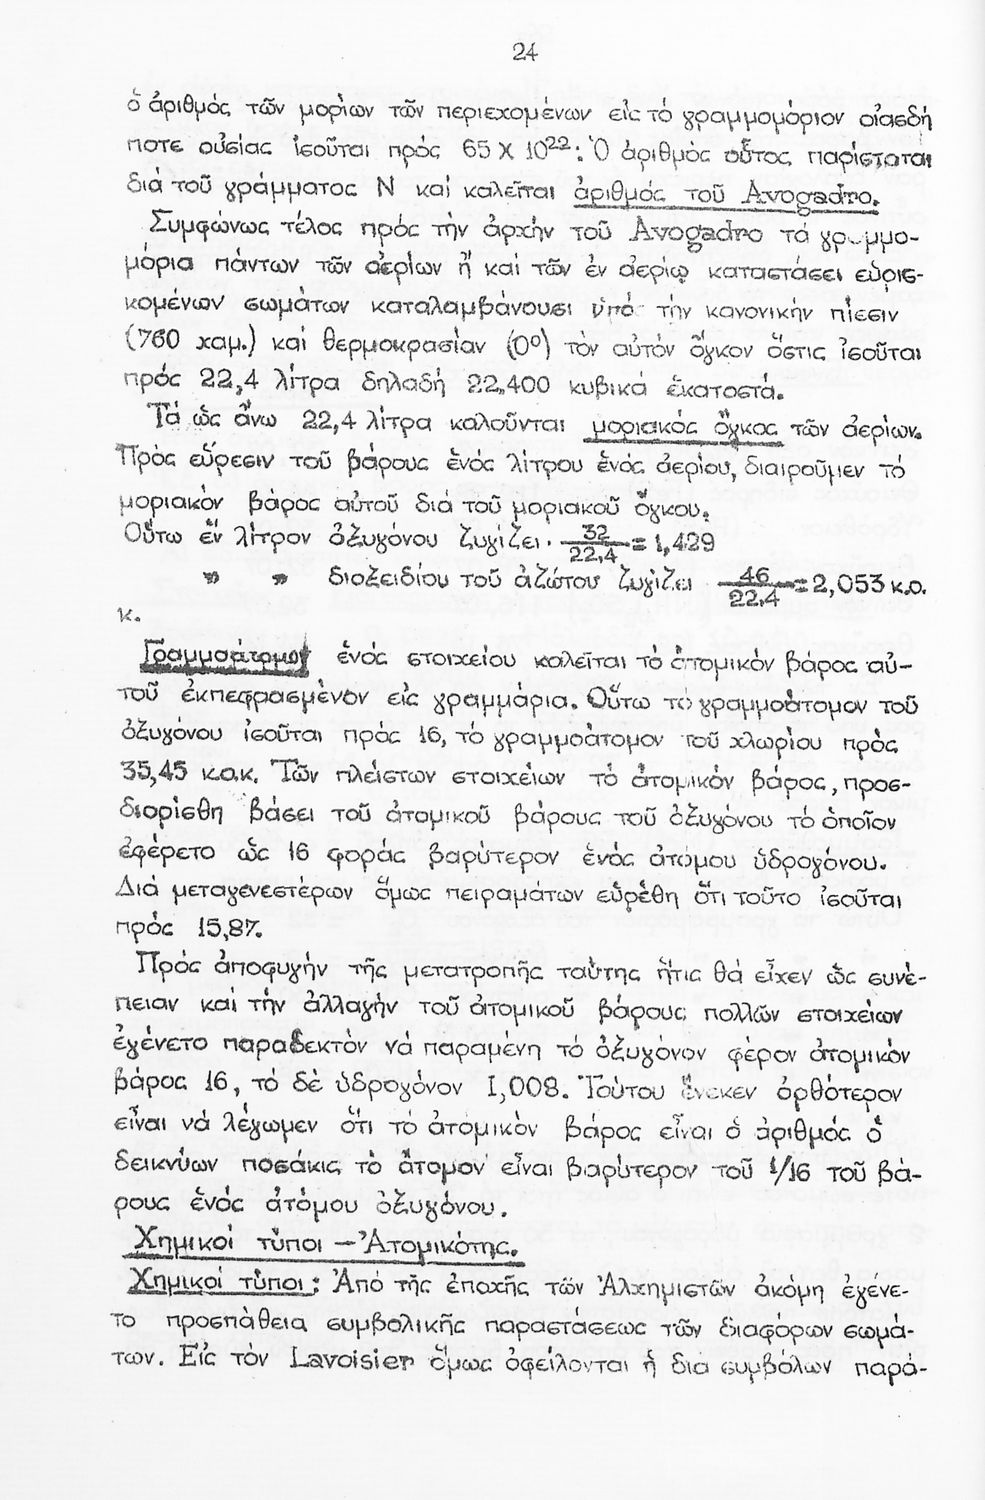 24
ὁ ἀριθμός τῶν μορίων τῶν περιεχομένων εἰς τό γραμμομόριον οἱασδή
ποτε οὐσίας ἰσοῦται πρός 65 Χ 10²²: Ὁ ἀριθμός οὗτος παρίσταται
διά τοῦ γράμματος Ν καί καλεῖται ἀριθμός τοῦ Avogadro.
Συμφώνως τέλος πρός τήν ἀρχήν τοῦ Avogadro τά γραμμο-
μόρια πάντων τῶν ἀερίων ἤ καί τῶν ἐν ἀερίῳ καταστάσει εὑρισ-
κομένων σωμάτων καταλαμβάνουσι ὑπό τήν κανονικήν πίεσιν
(760 χαμ.) καί θερμοκρασίαν (0°) τόν αὐτόν ὄγκον ὅστις ἰσοῦται
πρός 22,4 λίτρα δηλαδή 22,400 κυβικά ἑκατοστά.
Τά ὡς ἄνω 22,4 λίτρα καλοῦνται μοριακός ὄγκος τῶν ἀερίων.
Πρός εὕρεσιν τοῦ βάρους ἑνός λίτρου ἑνός ἀερίου, διαιροῦμεν τό
μοριακόν βάρος αὐτοῦ διά τοῦ μοριακοῦ ὄγκου.
Οὕτω ἕν λίτρον ὀξυγόνου ζυγίζει. 32/22,4 = 1,429
" " διοξειδίου τοῦ ἀζώτου ζυγίζει 46/22.4 = 2,053 κ.ο.
κ.
Γραμμοάτομον ἑνός στοιχείου καλεῖται τό ἀτομικόν βάρος αὐ-
τοῦ ἐκπεφρασμένον εἰς γραμμάρια. Οὕτω τό γραμμοάτομον τοῦ
ὀξυγόνου ἰσοῦται πρός 16, τό γραμμοάτομον τοῦ χλωρίου πρός
35,45 κ.ο.κ. Τῶν πλείστων στοιχείων τό ἀτομικόν βάρος, προσ-
διορίσθη βάσει τοῦ ἀτομικοῦ βάρους τοῦ ὀξυγόνου τό ὁποῖον
ἐφέρετο ὡς 16 φοράς βαρύτερον ἑνός ἀτόμου ὑδρογόνου.
Διά μεταγενεστέρων ὅμως πειραμάτων εὑρέθη ὅτι τοῦτο ἰσοῦται
πρός 15,87.
Πρός ἀποφυγήν τῆς μετατροπῆς ταύτης ἥτις θά εἶχεν ὡς συνέ-
πειαν καί τήν ἀλλαγήν τοῦ ἀτομικοῦ βάρους πολλῶν στοιχείων
ἐγένετο παραδεκτόν νά παραμένη τό ὀξυγόνον φέρον ἀτομικόν
βάρος 16, τό δέ ὑδρογόνον 1,008. Τούτου ἕνεκεν ὀρθότερον
εἶναι νά λέγωμεν ὅτι τό ἀτομικόν βάρος εἶναι ὁ ἀριθμός ὁ
δεικνύων ποσάκις τό ἄτομον εἶναι βαρύτερον τοῦ 1/16 τοῦ βά-
ρους ἑνός ἀτόμου ὀξυγόνου.
Χημικοί τύποι – Ἀτομικότης.
Χημικοί τύποι: Ἀπό τῆς ἐποχῆς τῶν Ἀλχημιστῶν ἀκόμη ἐγένε-
το προσπάθεια συμβολικῆς παραστάσεως τῶν διαφόρων σωμά-
των. Εἰς τόν Lavoisier ὅμως ὀφείλονται ἡ διά συμβόλων παρά-